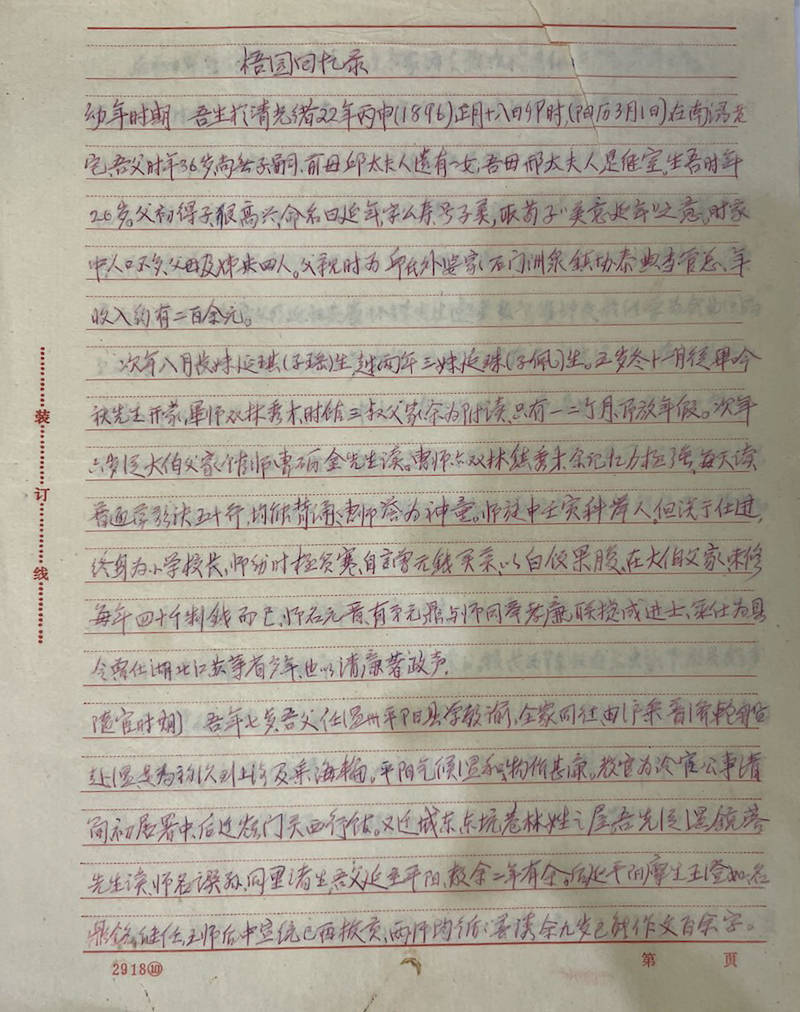 梧园回忆录
幼年时期 吾生于清光绪22年丙申(1896)正月十八日卯时,(阳历3月1日)在南浔老
宅,吾父时年36岁,尚无子嗣,前母邱太夫人遗有一女,吾母邢太夫人是继室,生吾时年
26岁。父初得子狠高兴,命名曰延年,字公寿号子美,取荀子"美意延年"之意。时家
中人口不多,父母及姊共四人。父亲时为邱氏外婆家石门洲泉镇协泰典当管总,年
收入约有二百余元。
次年八月长妹延琪(子瑶)生,越两年三妹延珠(子佩)生。五岁冬十一月从毕吟
秋先生开蒙,毕师双林秀才,时馆三叔父家,余为附读,只有一二个月,即放年假。次年
六岁从大伯父家馆师曹砺金先生读。曹师亦双林县秀才,余记忆力极强,每天读
普通 五十行,均能背诵,曹师誉为神童。师旋中壬寅科举人,但淡于仕进,
终身为小学校长,师幼时极贫寒,自言曾无钱买菜,以白饭果腹,在大伯父家束修
每年四十千制钱而已,师名元晋,有弟元鼎与师同举孝廉,联捷成进士,采仕为县
令曾任湖北江 等省多年,也以清廉著政声。
随宦时期 吾年七岁,吾父任温州平阳县学教谕,全家同往由沪乘普济轮船
赴温,是为初次到上海及乘海轮。平阳气候温和,物价甚廉。教官为冷官,公事清
简,初居署中,后迁 门头西行街。又迁城东东坑巷林姓之屋,吾先从 镜蓉
先生读,师名 孙,同里诸生,吾父延至平阳,教余二年有余。后延平阳廪生王澄如,名
鼎铭,继任,王师后中宣统己酉拔贡,两师均循 善读,余九岁已能作文百余字。
装订线
2918⑩
第 页